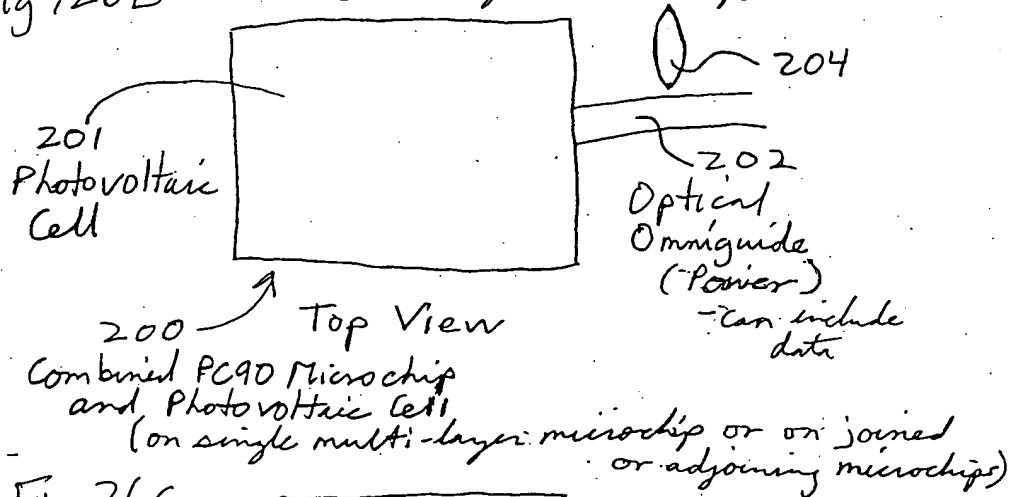 204
201
Photovoltaic
Cell
202
Optical
Omniguide
(Power)
- can include
data
200
Top View
Combined PC90 Microchip
and Photovoltaic Cell
(on single multi-layer microchip or on joined
or adjoining microchips)